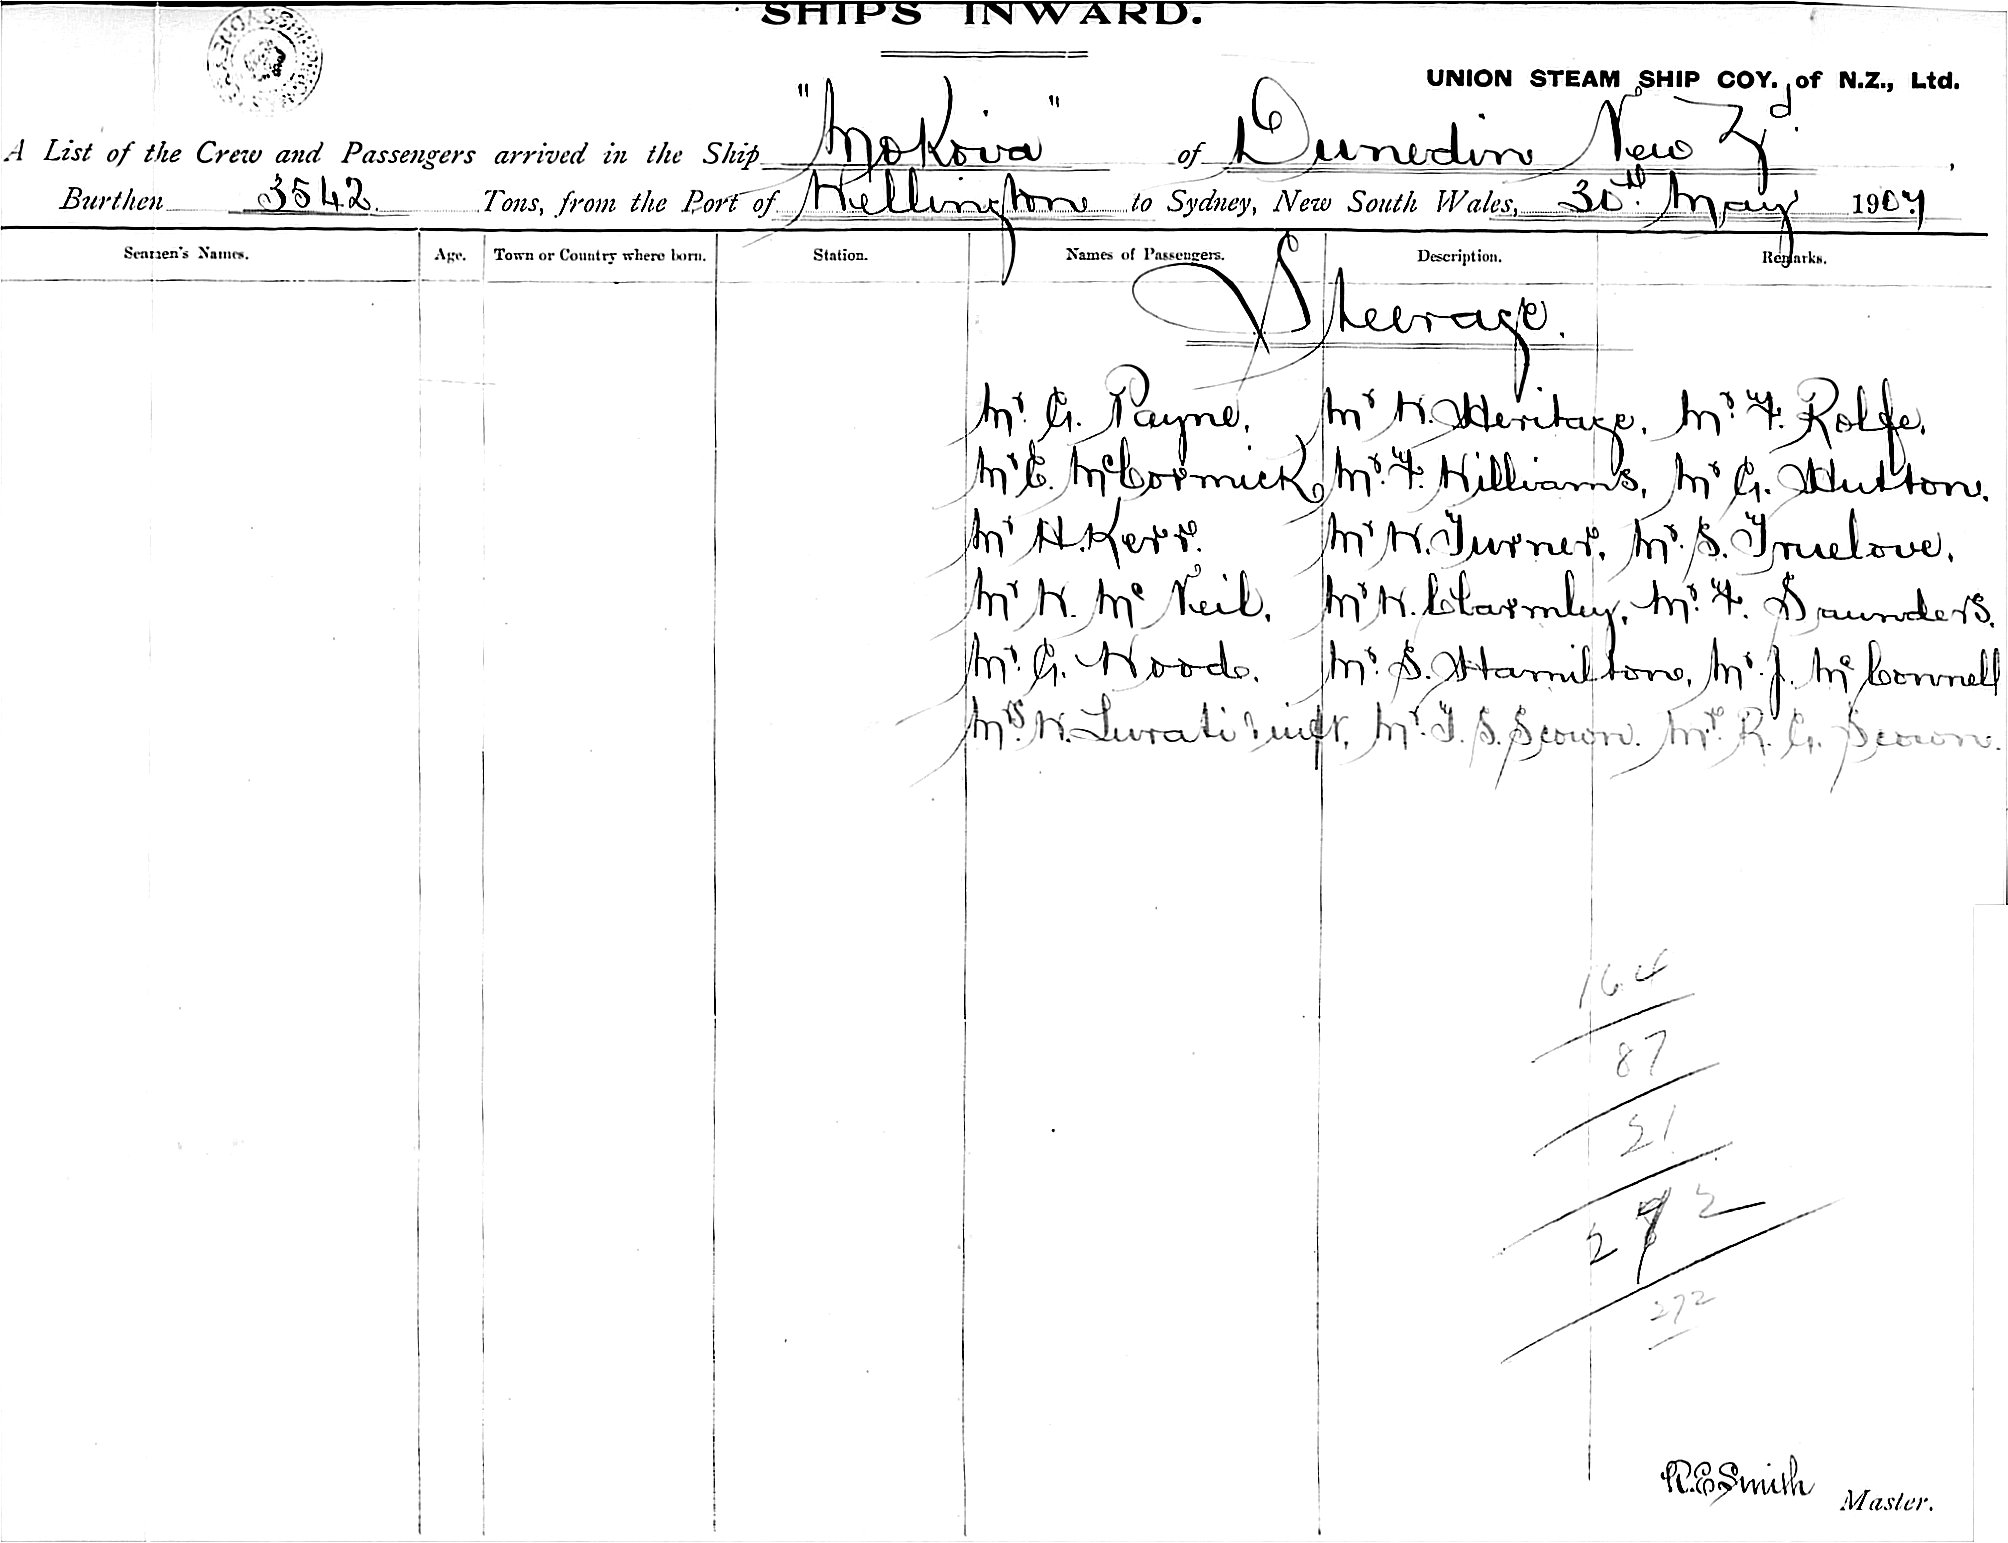 SHIPS INWARD.
UNION STEAM SHIP COY. of N.Z., Ltd.
A List of the Crew and Passengers arrived in the Ship "Mokoia" of Dunedin New Zd.,
Burthen 3542 Tons, from the Port of Wellington to Sydney, New South Wales, 30th May 1907
Seamen's Names. Age. Town or Country where born. Station. Names of Passengers. Description. Remarks.
Steerage.
Mr. G. Payne, Mr W. Heritage, Mr. F. Rolfe,
Mr E. McCormick, Mr. F. Williams, Mr G. Hutton.
Mr H. Kerr. Mr W. Turner, Mr. S. Truelove,
Mr W. Mc Neil, Mr W. Charmley, Mr. F. Saunders.
Mr. G. Wood. Mr. S. Hamilton, Mr. J. McConnell
Mrs. W. Lurati & inft, Mr. T. S. Scown. Mr. R. G. Scown.
164
87
21
272
272
W.E Smith Master.